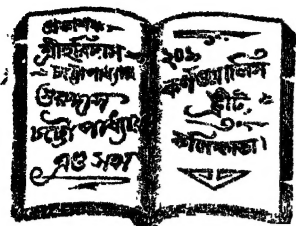 প্রকাশক—
শ্রীহরিদাস
চট্টোপাধ্যায়
গুরুদাস
চট্টোপাধ্যায়
এণ্ড সন্স
২০১
কর্ণওয়ালিস
ষ্ট্রীট,
কলিকাতা।